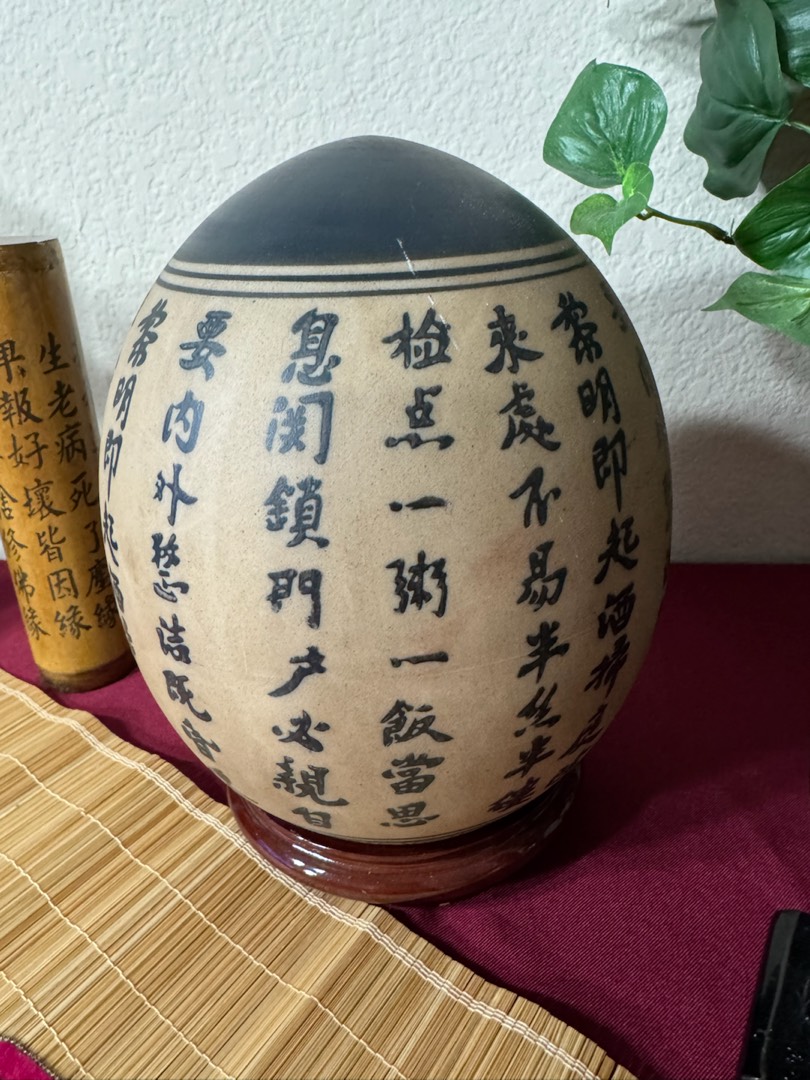 生老病死了塵緣
果報好壞皆因緣
捨修佛緣
黎明即起洒
要内外整洁既昏
息関鎖門户必親自
检点一粥一飯當思
来處不易半丝半縷
黎明即起洒掃庭